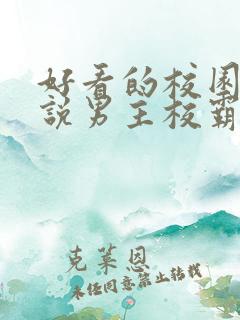 好看的校园
說男主校霸
克莱恩
未经同意禁止转载